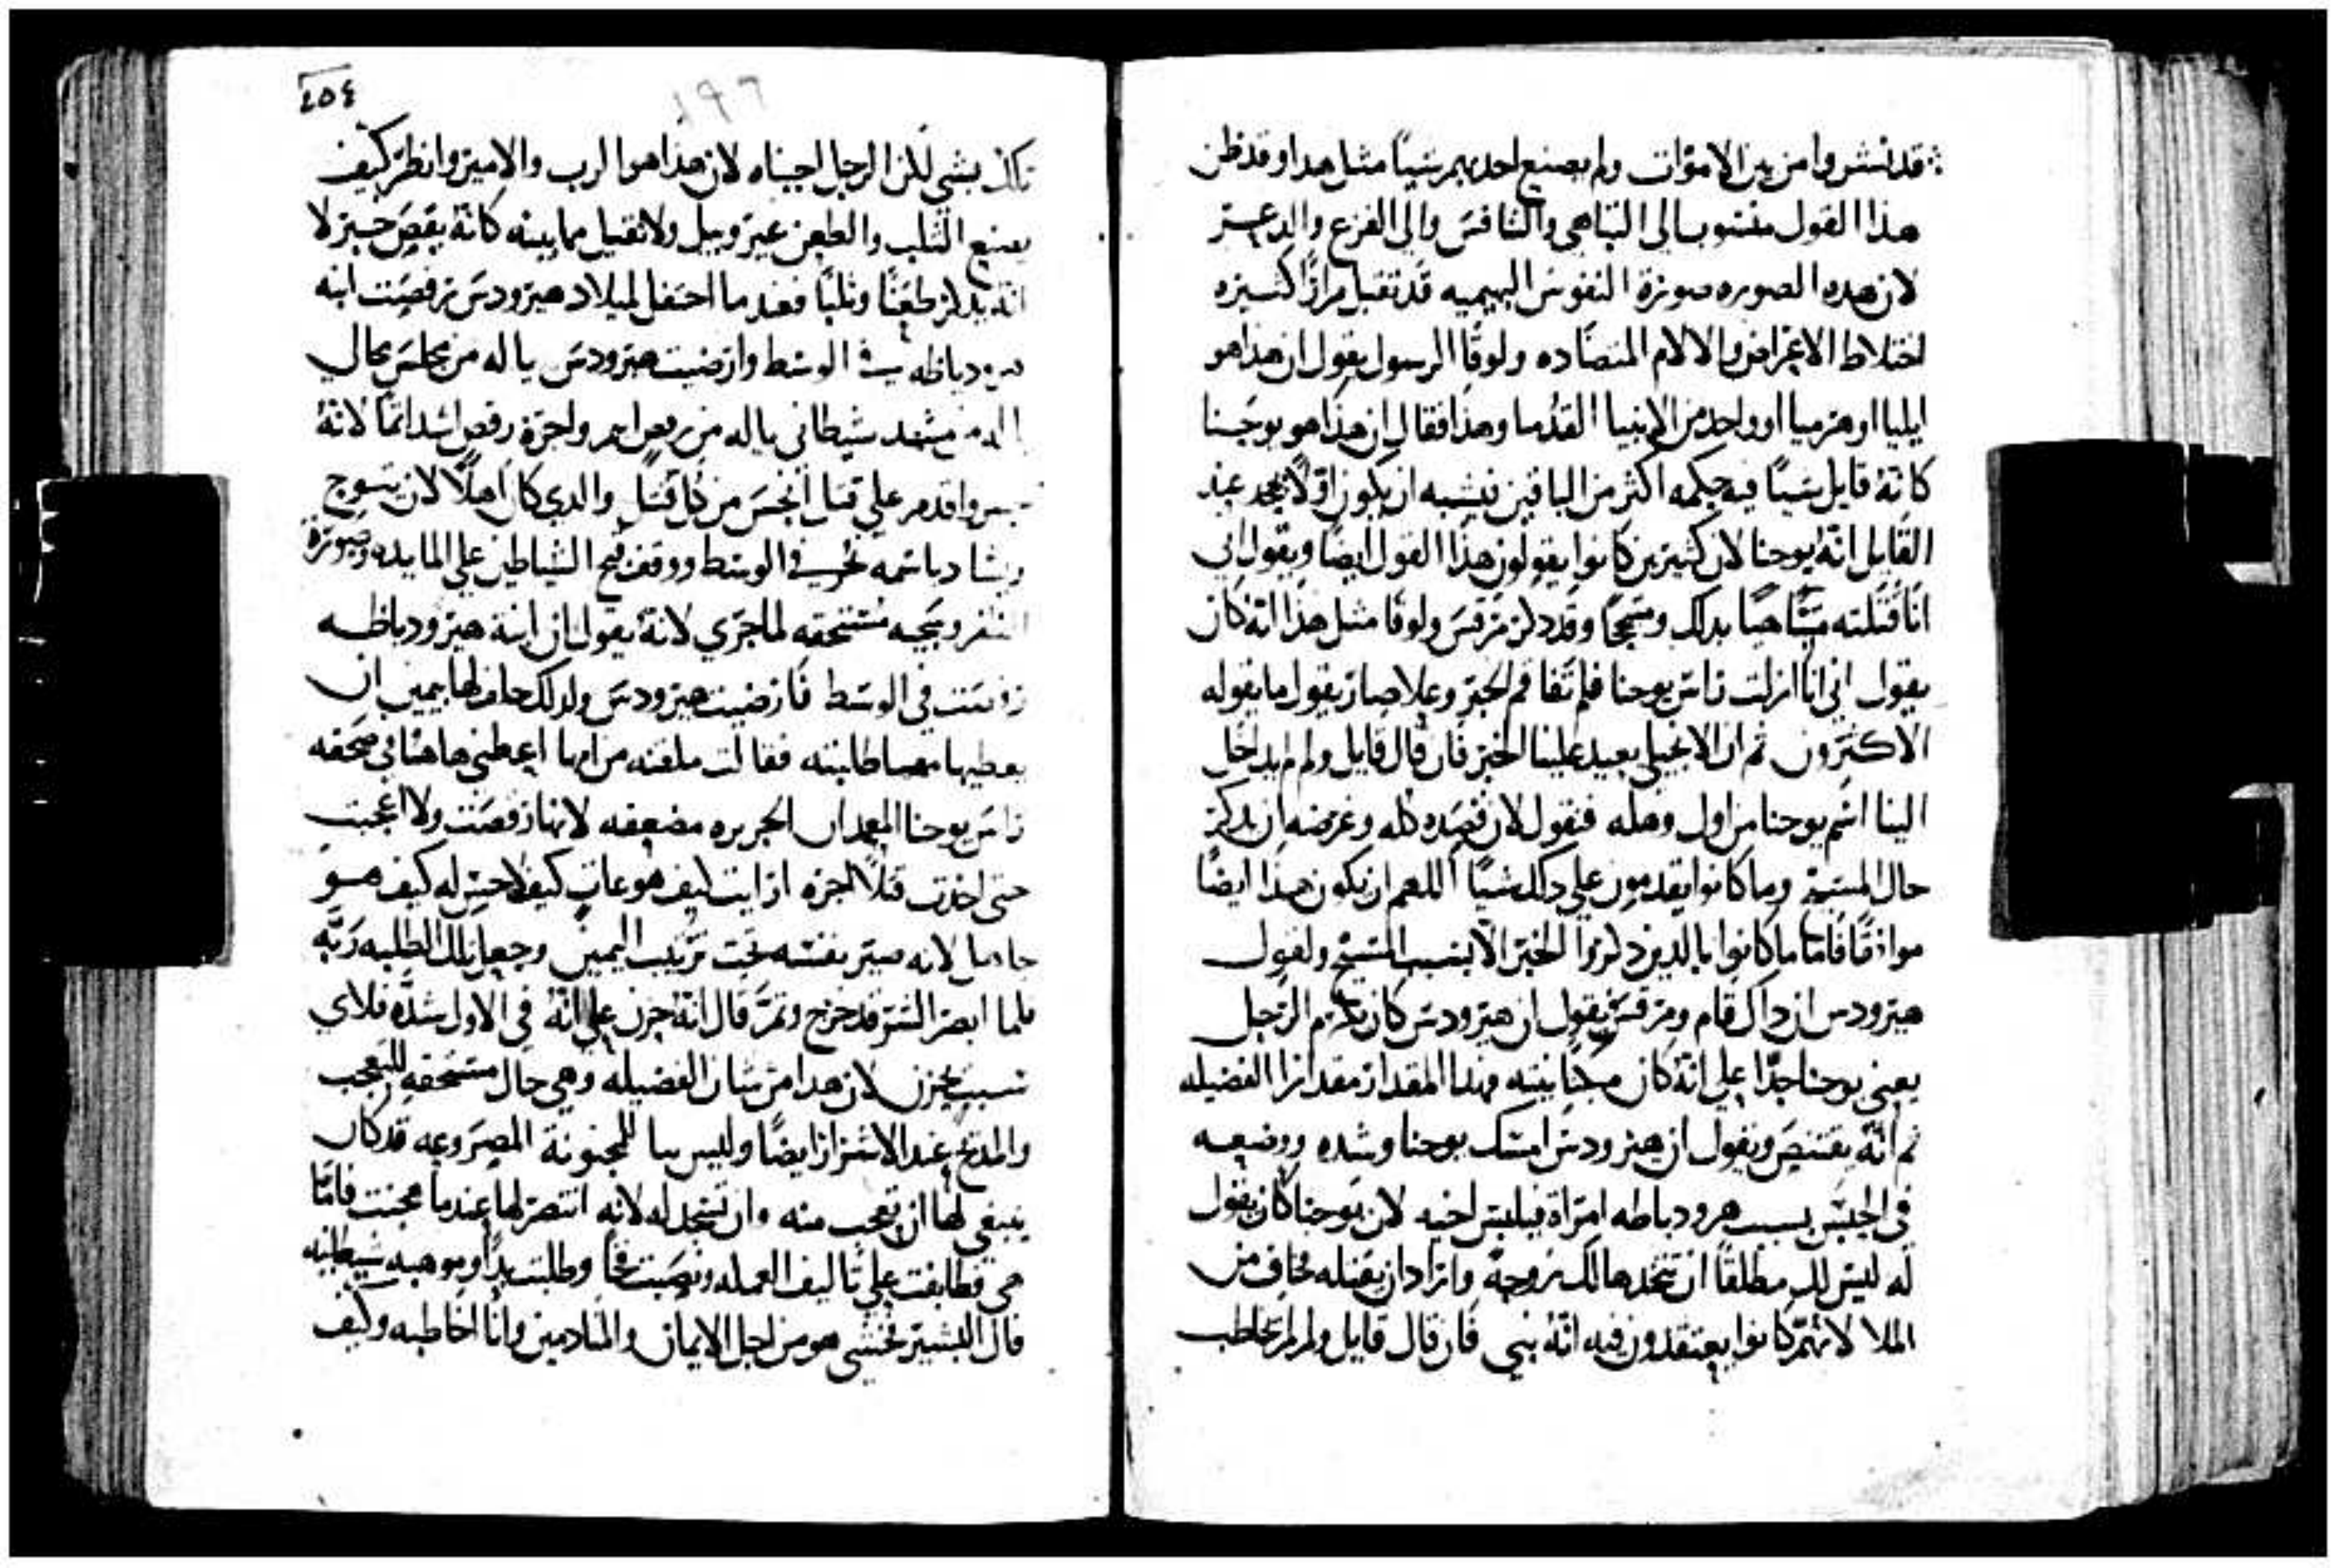 قد نشروا من بين الاموات ولم يصنع احدهم شيًا مثل هدا وقد ظن
هذا القول منسوب الى التباهي والتنافس والى الفزع والدعر
لان هده الصوره صورة النفوس البهيميه قد تقبل مرارًا كثيره
اختلاط الاعراض والالام المتضاده ولوقا الرسول يقول ان هدا هو
ايليا او هرميا او واحد من الانبيا القدما وهذا فقال ان هذا هو يوحنا
كانه قايل شيًا فيه حكمه اكثر من الباقين فيشبه ان يكون اولًا يجحد عند
القايل انه يوحنا لان كثيرين كانوا يقولون هذا القول ايضًا ويقول اني
انا قتلته بدلك وقد دكر مرقس ولوقا مثل هذا انه كان
يقول اني انا ازلت راس يوحنا فلما الخبر وعلا صار يقول ما يقوله
الاكثرون ثم ان الانجيلي يعيد علينا الخبر فان قال قايل ولم لم يدخل
الينا اسم يوحنا من اول وهله فنقول لان قصده كله وغرضه ان يدكر
حال المسيح وما كانوا يقدمون على دلك شيًا اللهم ان يكون هدا ايضًا
موافقًا فاما ما كانوا بالدين دكروا الخبر الا بسبب المسيح ولقول
هيرودس ان داك قام ومرقس يقول ان هيرودس كان يكرم الرجل
يعني يوحنا جدًا على انه كان وبهدا المقدار مقدار الفضيله
ثم انه يقتنص ويقول ان هيرودس امسك يوحنا وشده ووضعه
في الحبس بسبب هروديا طه امراة فيلبس اخيه لان يوحنا كان يقول
له ليس لك مطلقًا ان تتخدها لك زوجه واراد ان يقتله فخاف من
الملا لانهم كانوا يعتقدون فيه انه نبي فان قال قايل ولم لم تخاطب
٤٥٤
١٩٦
بشي لكن الرجل اجبناه لان هذا هو الرب والامين وانظر كيف
يصنع الثلب والطعن غير وبيل ولا ثقيل مما بينه كانه يقص خبر لا
انه يدكر طعنًا وثلبًا فعند ما احتفل لميلاد هيرودس رقصت ابنه
هرودياظه في الوسط وارضيت هيرودس يا له من مجلس محال
يا له من مشهد شيطاني يا له من رقص اجر واجرة رقص اشد اثمًا لانه
واقدم على قتل انجس من كل قتل والدي كان اهلًا لان يتوج
ويشاد باسمه في الوسط ووقف الشياطين على المايده وصورة
مستحقه لما جرى لانه يقول ان ابنة هيرودياظه
رقصت في الوسط فارضيت هيرودس ولدلك حلف لها بيمين ان
يعطيها مهما طلبته فقالت ملقنه من امها اعطني هاهنا في صحفه
راس يوحنا المعمدان الجريره مضعفه لانها رقصت ولا اعجبت
حتى اخذت قتلًا اجره ارايت كيف هو عات كيف لا حس له كيف هو
جاهل لانه صير نفسه تحت ترتيب اليمين وجعل تلك الطلبه ربه
فلما ابصر الشر قد خرج وتمر قال انه حزن على انه في الاول شده فلاي
سبب يحزن لان هدا من شان الفضيله وهي حال مستحقه للتعجب
والمدح عند الاشرار ايضًا وليس بيا للمجنونة المصروعه قد كان
ينبغي لها ان تعجب منه وان تسجد له لانه انتصر لها عندما فاما
هي فطابقت على تاليف العمله ونصبت فخًا وطلبت موهبه شيطانيه
قال البشير خشى هو من اجل الايمان والمنادمين وانا اخاطبه وكيف